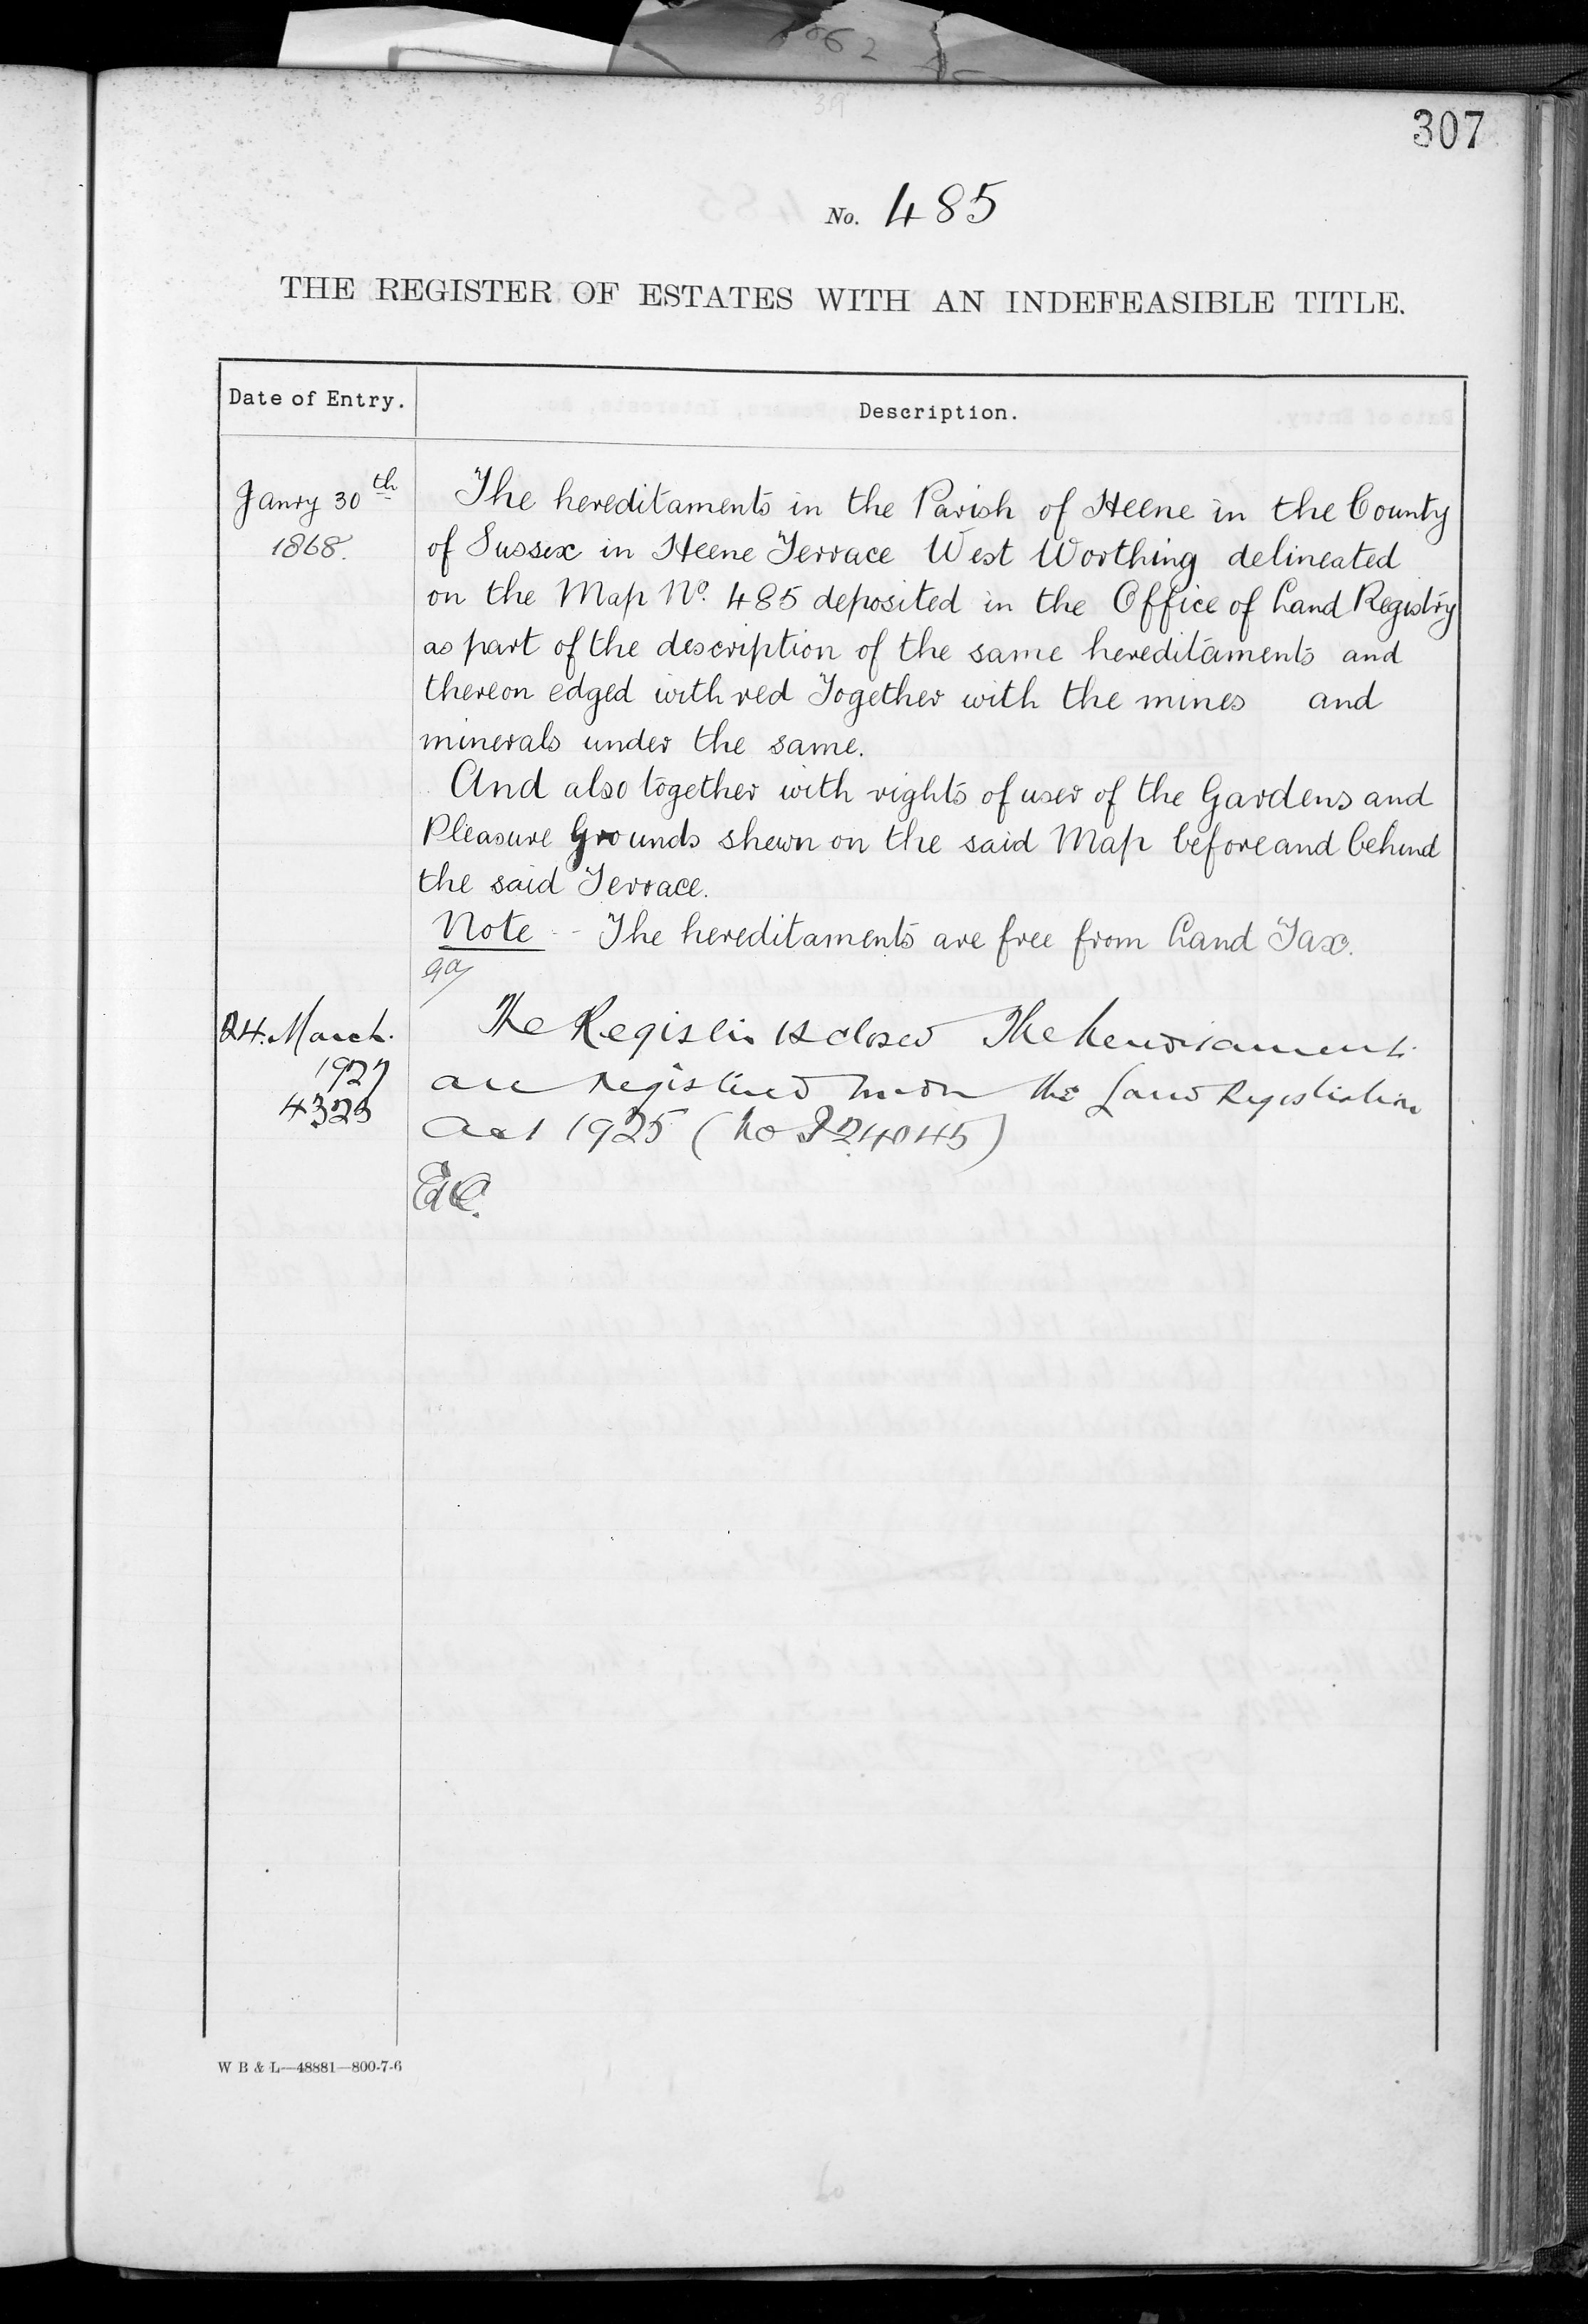 307
No. 485
THE REGISTER OF ESTATES WITH AN INDEFEASIBLE TITLE.
Date of Entry.
Description.
Janry 30th
1868.
The hereditaments in the Parish of Heene in the County
of Sussex in Heene Terrace West Worthing delineated
on the Map No. 485 deposited in the Office of Land Registry
as part of the description of the same hereditaments and
thereon edged with red Together with the mines and
minerals under the same.
And also together with rights of user of the Gardens and
Pleasure Grounds shewn on the said Map before and behind
the said Terrace.
Note - The hereditaments are free from Land Tax.
24. March.
1927
4323
The Register is closed The hereditaments
are registered under the Land Registration
Act 1925 (No P24045)
W B & L—48881—800-7-6